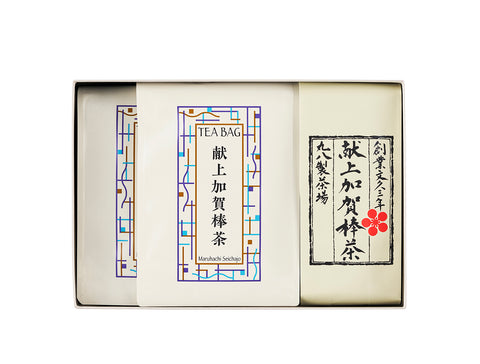 TEA BAG
献上加賀棒茶
Maruhachi Seichajo
創業文久三年
献上加賀棒茶
丸八製茶場